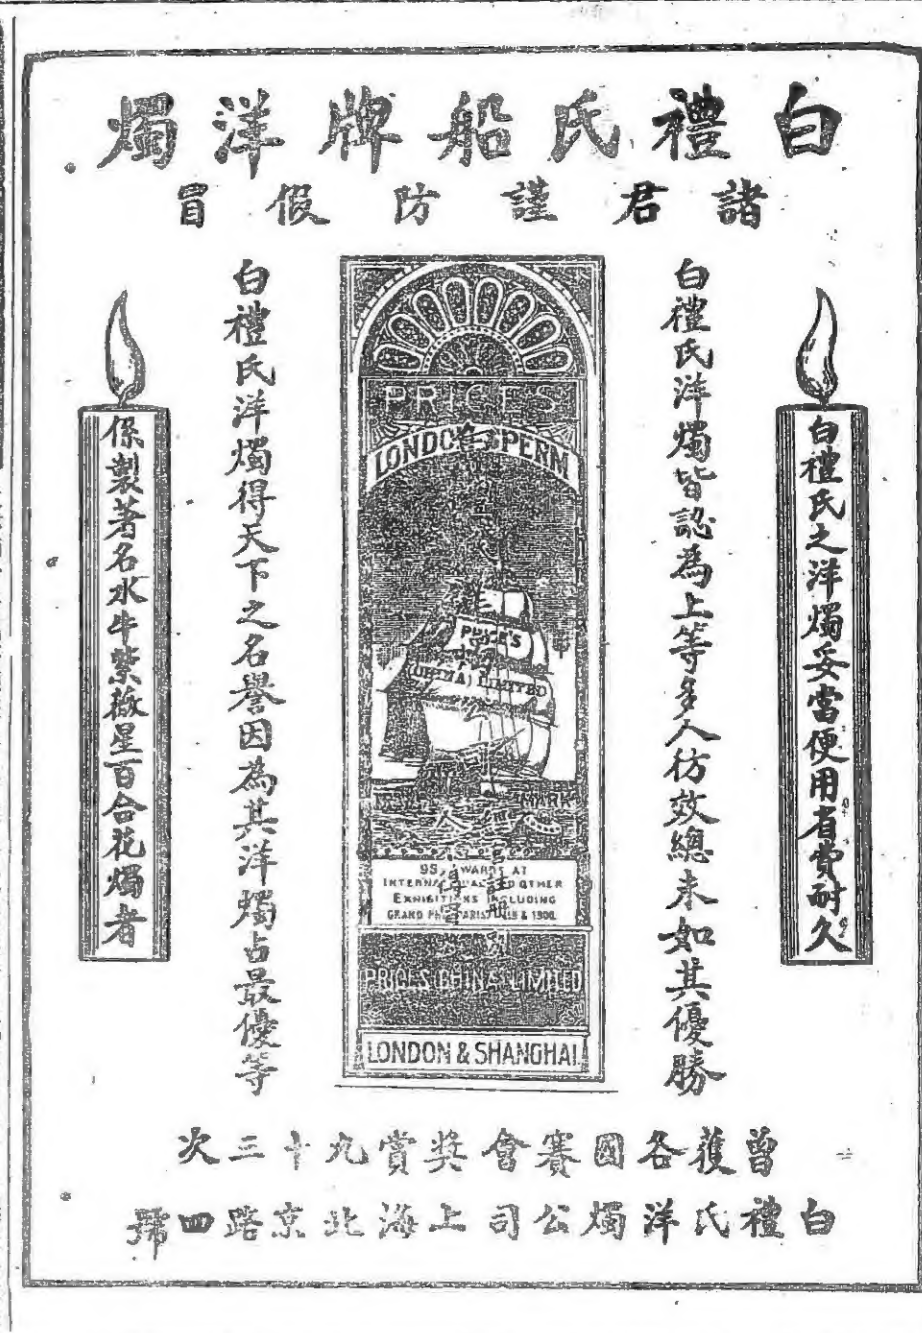 白禮氏船牌洋燭
諸君謹防假冒
白禮氏之洋燭妥當便用省費耐久
白禮氏洋燭皆認為上等多人彷效總未如其優勝
PRICE'S
LONDON SPERM
PRICE'S
(CHINA) LIMITED
MARK
AWARDS AT
INTERNATIONAL AND OTHER
EXHIBITIONS INCLUDING
GRAND PRIX PARIS & 1900.
PRICE'S CHINA LIMITED
LONDON & SHANGHAI
白禮氏洋燭得天下之名譽因為其洋燭占最優等
係製著名水牛紫薇星百合花燭者
曾獲各國賽會獎賞九十三次
白禮氏洋燭公司上海北京路四號